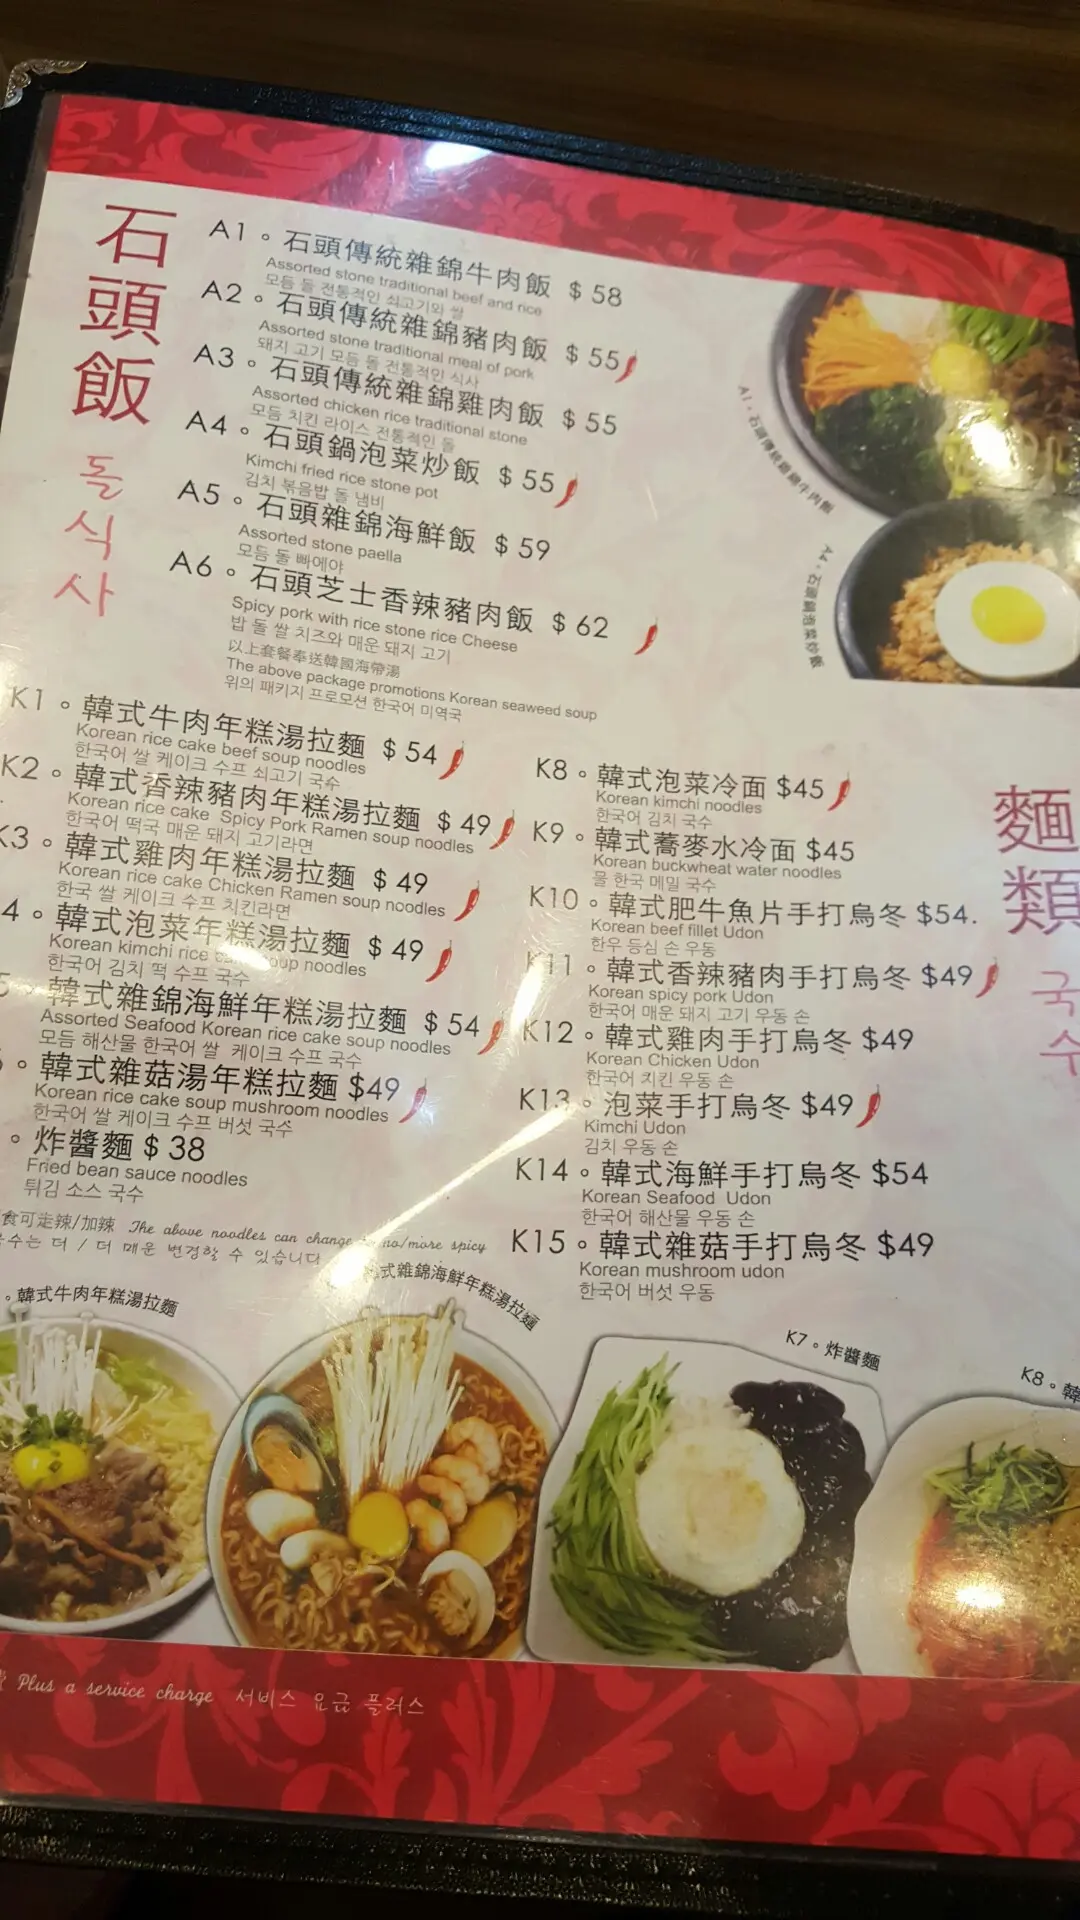 石頭飯
돌식사
A1。石頭傳統雜錦牛肉飯 $ 58
Assorted stone traditional beef and rice
모듬 돌 전통적인 쇠고기와 쌀
A2。石頭傳統雜錦豬肉飯 $ 55
Assorted stone traditional meal of pork
돼지 고기 모듬 돌 전통적인 식사
A3。石頭傳統雜錦雞肉飯 $ 55
Assorted chicken rice traditional stone
모듬 치킨 라이스 전통적인 돌
A4。石頭鍋泡菜炒飯 $ 55
Kimchi fried rice stone pot
김치 볶음밥 돌 냄비
A5。石頭雜錦海鮮飯 $ 59
Assorted stone paella
모듬 돌 빠에야
A6。石頭芝士香辣豬肉飯 $ 62
Spicy pork with rice stone rice Cheese
밥 돌 쌀 치즈와 매운 돼지 고기
以上套餐奉送韓國海帶湯
The above package promotions Korean seaweed soup
위의 패키지 프로모션 한국어 미역국
A1。石頭傳統雜錦牛肉飯
A4。石頭鍋泡菜炒飯
K1。韓式牛肉年糕湯拉麵 $ 54
Korean rice cake beef soup noodles
한국어 쌀 케이크 수프 쇠고기 국슈
K2。韓式香辣豬肉年糕湯拉麵 $ 49
Korean rice cake Spicy Pork Ramen soup noodles
한국어 떡국 매운 돼지 고기라면
K3。韓式雞肉年糕湯拉麵 $ 49
Korean rice cake Chicken Ramen soup noodles
한국 쌀 케이크 수프 치킨라면
4。韓式泡菜年糕湯拉麵 $ 49
Korean kimchi rice cake soup noodles
한국어 김치 떡 수프 국수
韓式雜錦海鮮年糕湯拉麵 $ 54
Assorted Seafood Korean rice cake soup noodles
모듬 해산물 한국어 쌀 케이크 수프 국수
。韓式雜菇湯年糕拉麵 $49
Korean rice cake soup mushroom noodles
한국어 쌀 케이크 수프 버섯 국수
。炸醬麵 $ 38
Fried bean sauce noodles
튀김 소스 국수
食可走辣/加辣 The above noodles can change no/more spicy
국수는 더 / 더 매운 변경할 수 있습니다
麵類
국수
K8。韓式泡菜冷面 $45
Korean kimchi noodles
한국어 김치 국수
K9。韓式蕎麥水冷面 $45
Korean buckwheat water noodles
물 한국 메밀 국수
K10。韓式肥牛魚片手打烏冬 $54.
Korean beef fillet Udon
한우 등심 손 우동
K11。韓式香辣豬肉手打烏冬 $49
Korean spicy pork Udon
한국어 매운 돼지 고기 우동 손
K12。韓式雞肉手打烏冬 $49
Korean Chicken Udon
한국어 치킨 우동 손
K13。泡菜手打烏冬 $49
Kimchi Udon
김치 우동 손
K14。韓式海鮮手打烏冬 $54
Korean Seafood Udon
한국어 해산물 우동 손
K15。韓式雜菇手打烏冬 $49
Korean mushroom udon
한국어 버섯 우동
。韓式牛肉年糕湯拉麵
式雜錦海鮮年糕湯拉麵
K7。炸醬麵
K8。韓
Plus a service charge 서비스 요금 플러스